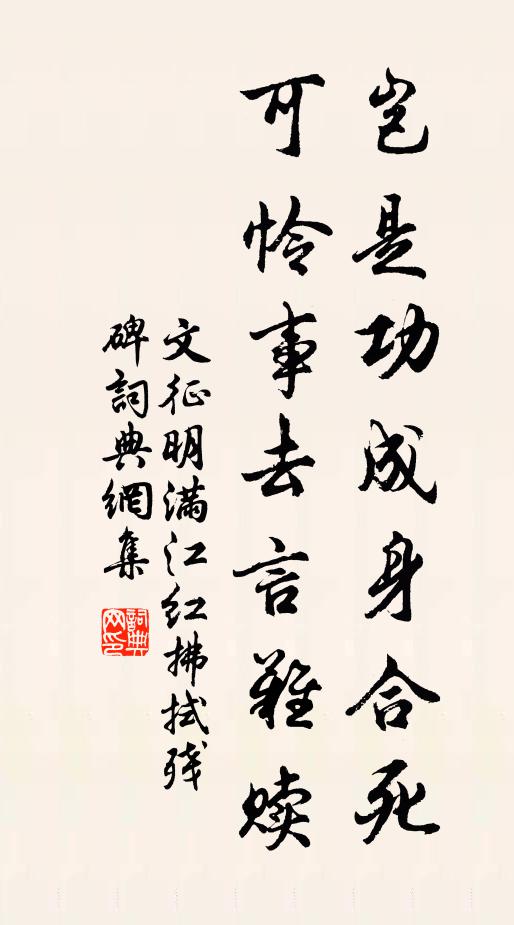 岂是功成身合死
可怜事去言难赎
文征明满江红拂拭残
碑词典網集
詞典网印